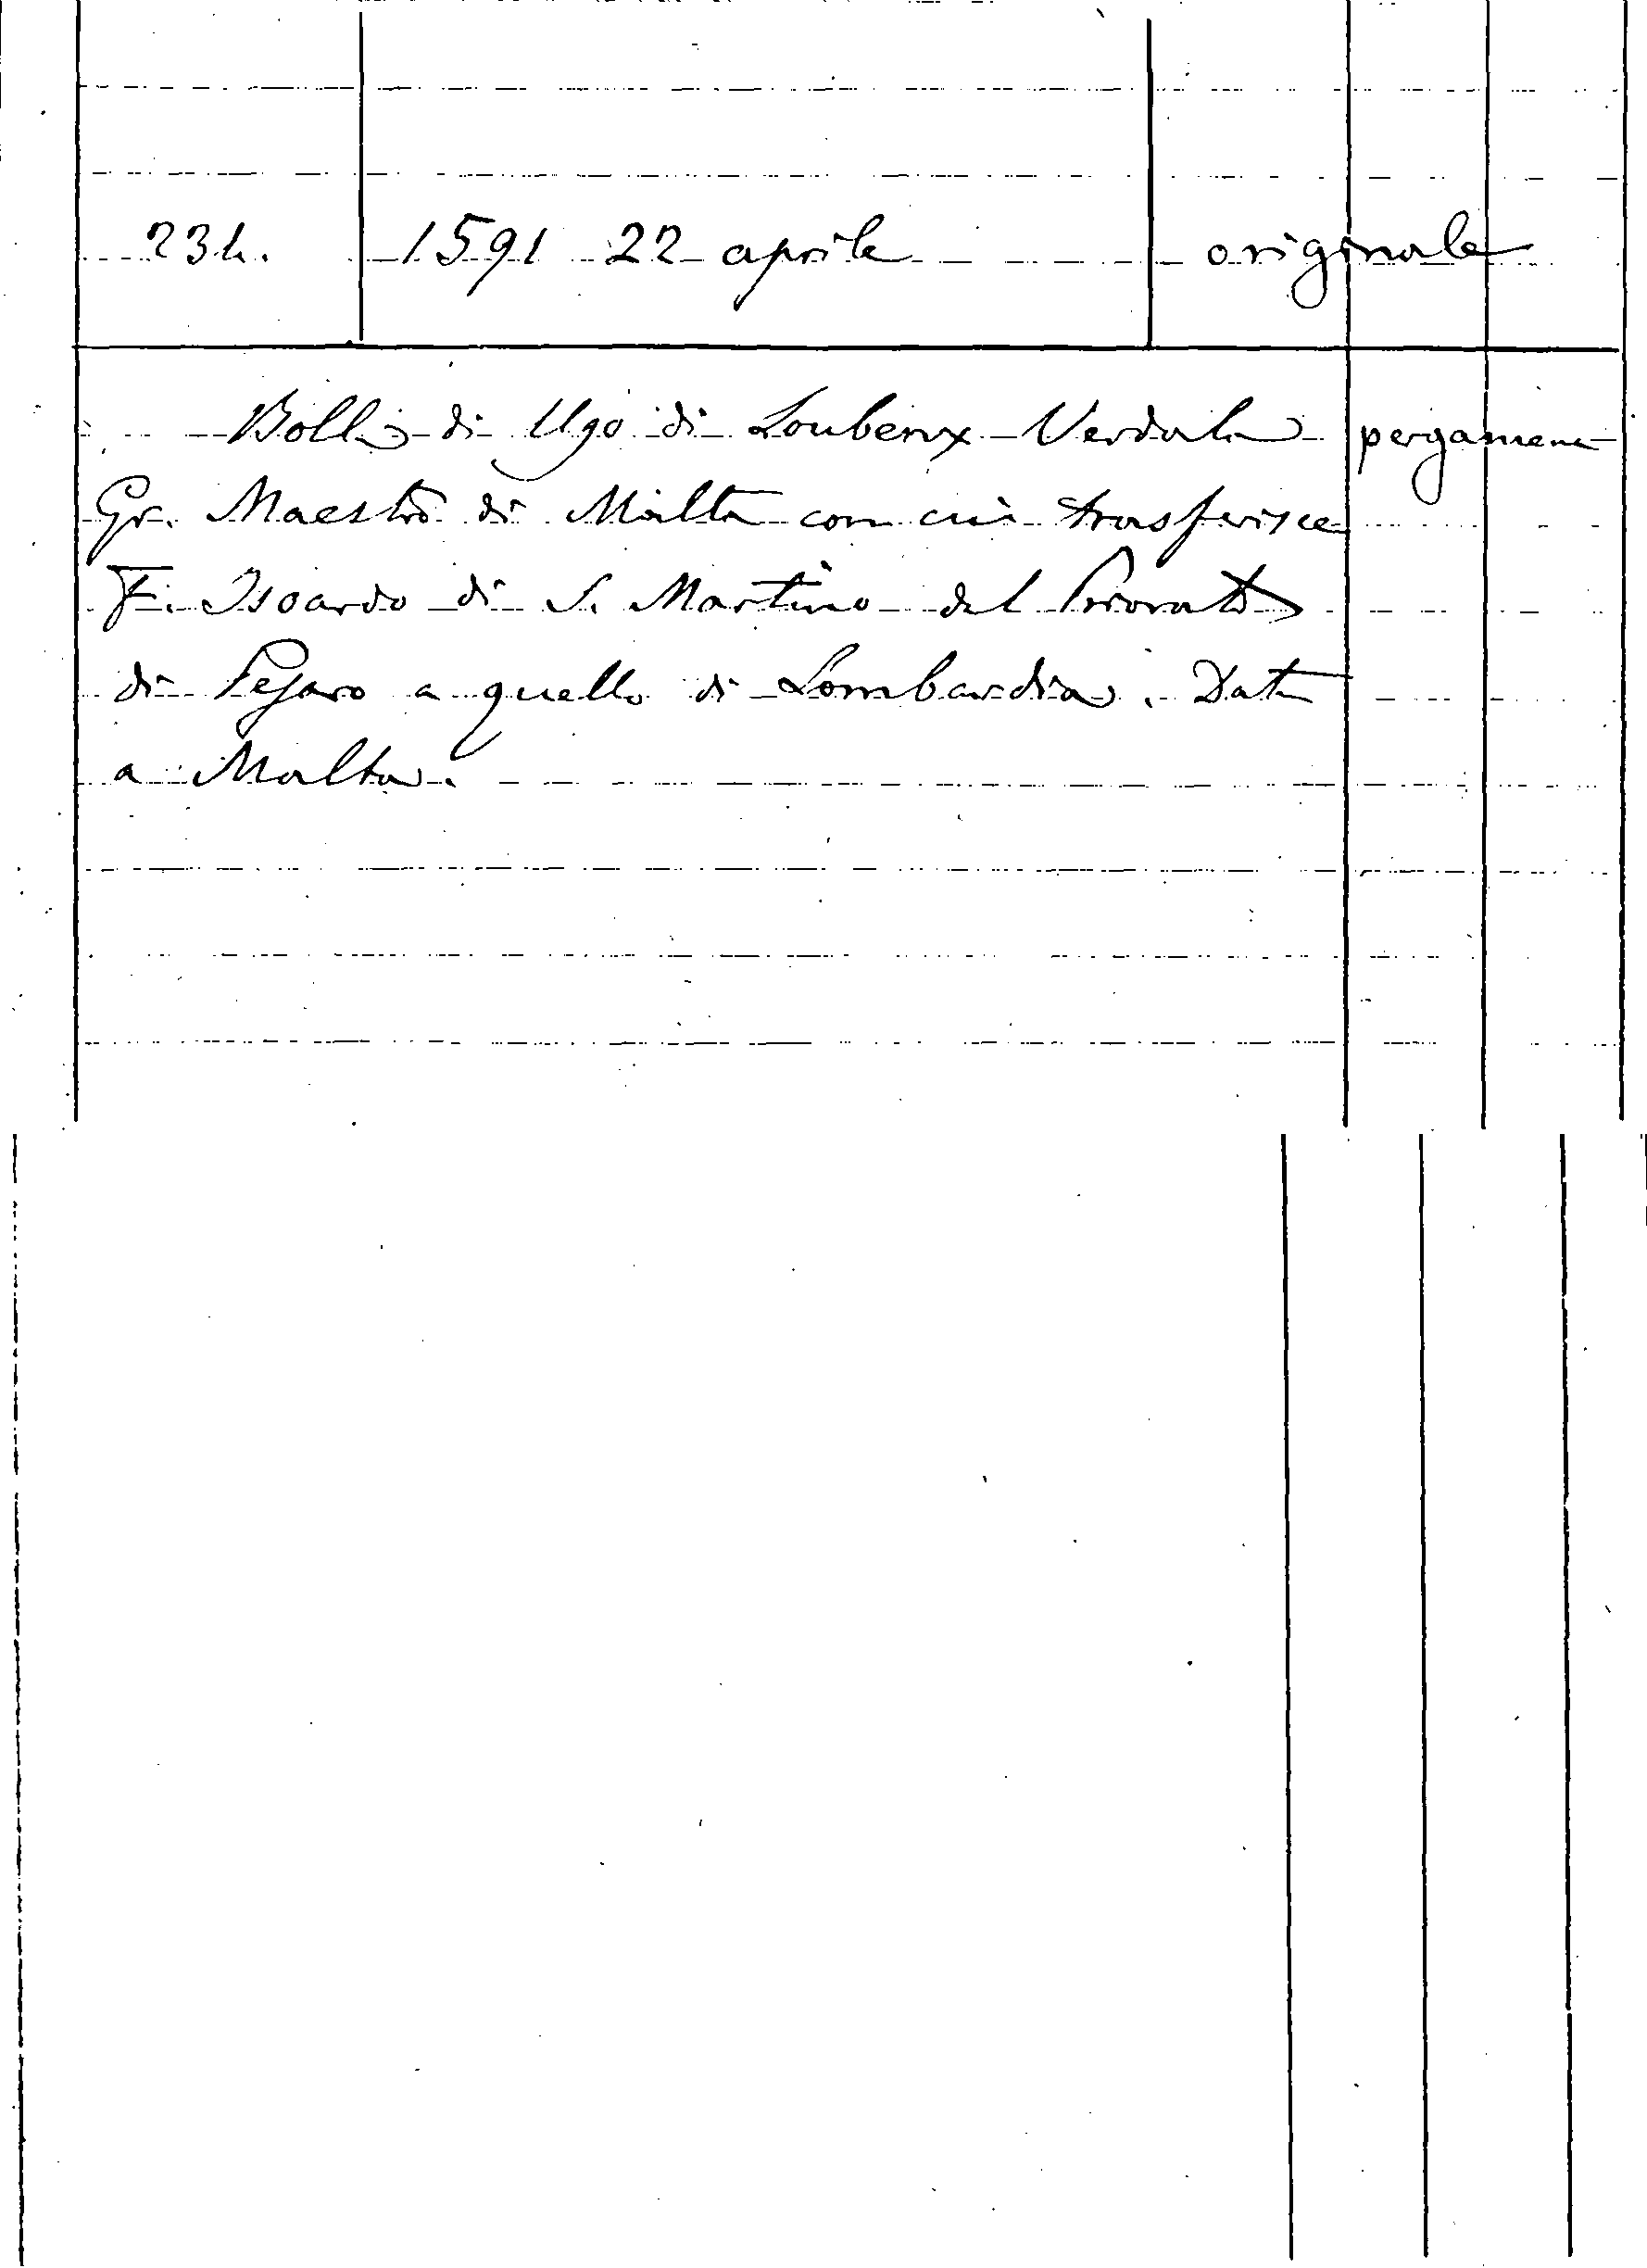 234. 1591 22 aprile originale
Bolla di Ugo di Loubenx Verdala pergamena
Gr. Maestro di Malta con cui trasferisce
F. Isoardo di S. Martino dal Priorato
di Pesaro a quello di Lombardia. Data
a Malta.